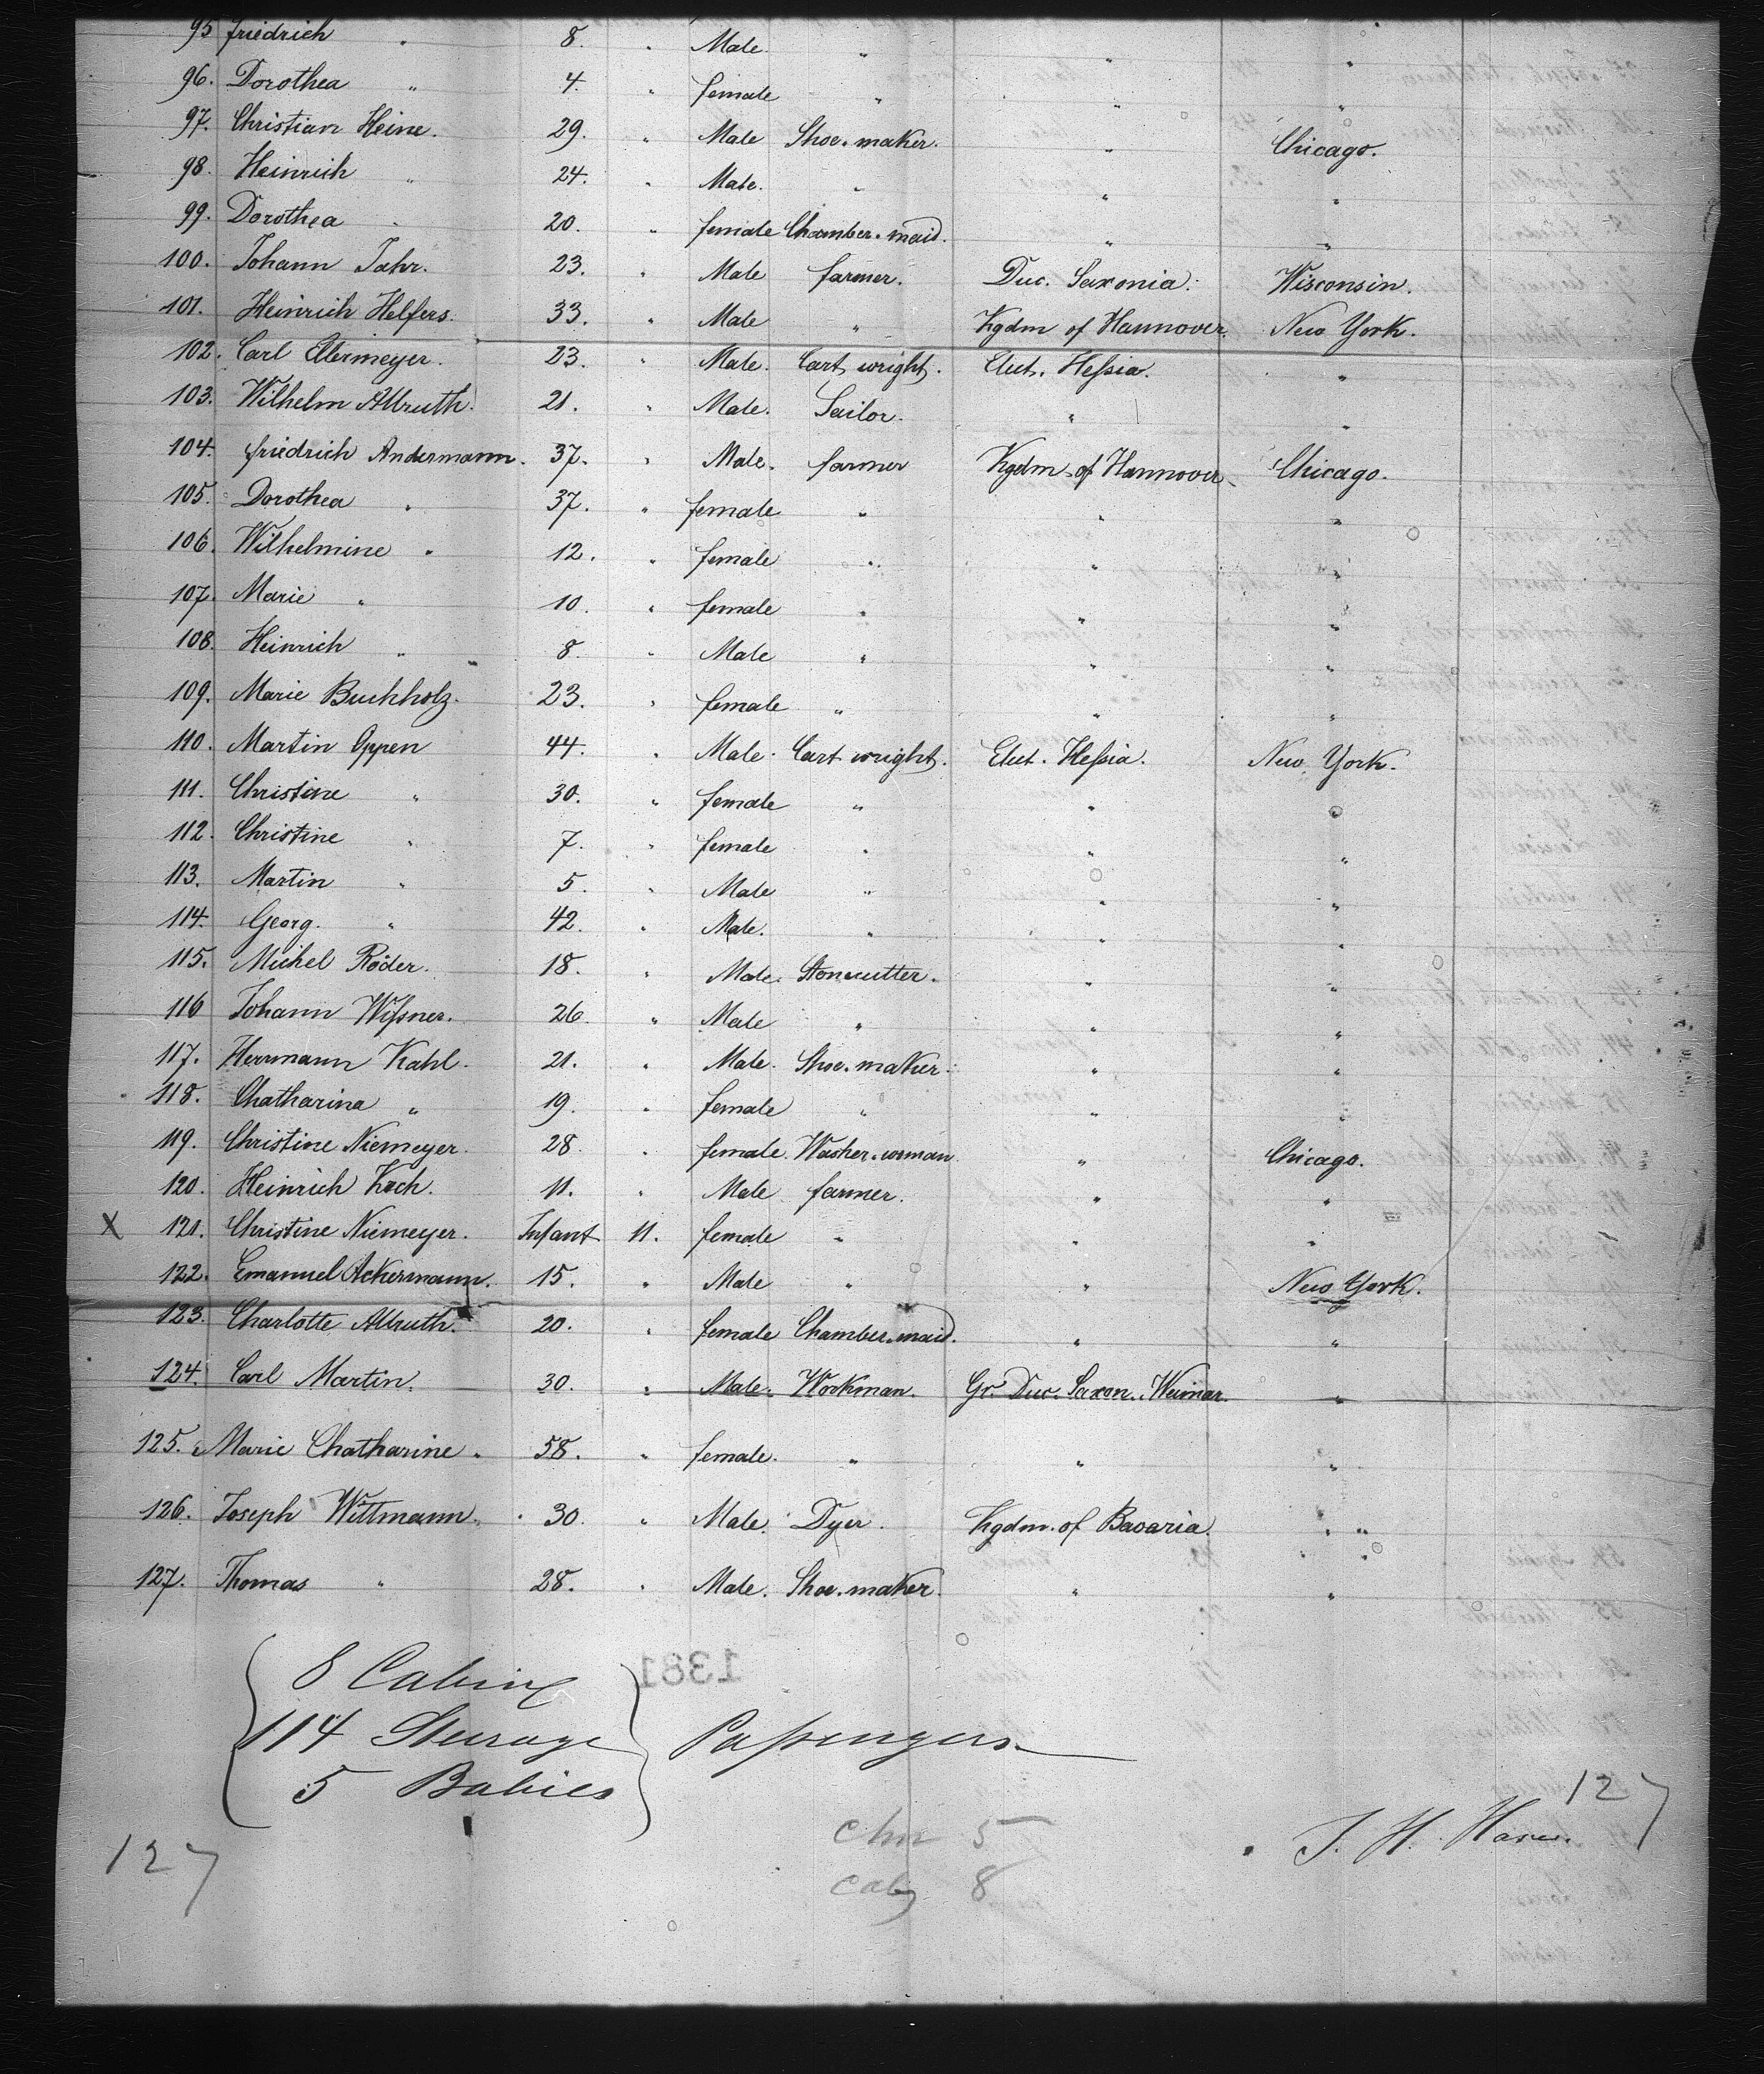 95 friedrich " 8. " Male. " " "
96. Dorothea " 4. " female " " "
97. Christian Heine. 29. " Male Shoe-maker. " Chicago.
98. Heinrich " 24. " Male. " " "
99. Dorothea " 20. " female Chamber-maid. " "
100. Johann Jahr. 23. " Male farmer. Duc. Saxonia. Wisconsin.
101. Heinrich Helfers. 33. " Male " Kgdm of Hannover. New York.
102. Carl Ellermeyer. 23. " Male. Cart wright. Elect. Hessia. "
103. Wilhelm Allruth. 21. " Male. Sailor. " "
104. friedrich Andermann. 37. " Male. farmer Kgdm of Hannover. Chicago.
105. Dorothea " 37. " female " " "
106. Wilhelmine " 12. " female " " "
107. Marie " 10. " female " " "
108. Heinrich " 8. " Male " " "
109. Marie Buchholz. 23. " female " " "
110. Martin Oppen 44. " Male. Cart wright. Elect. Hessia. New York.
111. Christine " 30. " female " " "
112. Christine " 7. " female " " "
113. Martin " 5. " Male " " "
114. Georg. " 42. " Male. " " "
115. Michel Röder. 18. " Male. Stonecutter. " "
116 Johann Wissner. 26. " Male " " "
117. Herrmann Kahl. 21. " Male. Shoe-maker. " "
118. Chatharina " 19. " female " " "
119. Christine Niemeyer. 28. " female. Washer-woman " Chicago.
120. Heinrich Koch. 11. " Male farmer. " "
X 121. Christine Niemeyer. Infant 11. female " " "
122. Emanuel Ackermann. 15. " Male " " New York.
123. Charlotte Allruth. 20. " female Chamber-maid. " "
124. Carl Martin. 30. " Male. Workman. Gr. Duc. Saxon. Weimar. "
125. Marie Chatharine " 58. " female. " " "
126. Joseph Wittmann. 30. " Male. Dyer. Kgdm. of Bavaria. "
127. Thomas " 28. " Male. Shoe-maker. " "
1381
8 Cabin
114 Steerage Passengers
5 Babies
127
chn 5
cab 8
127
J. H.